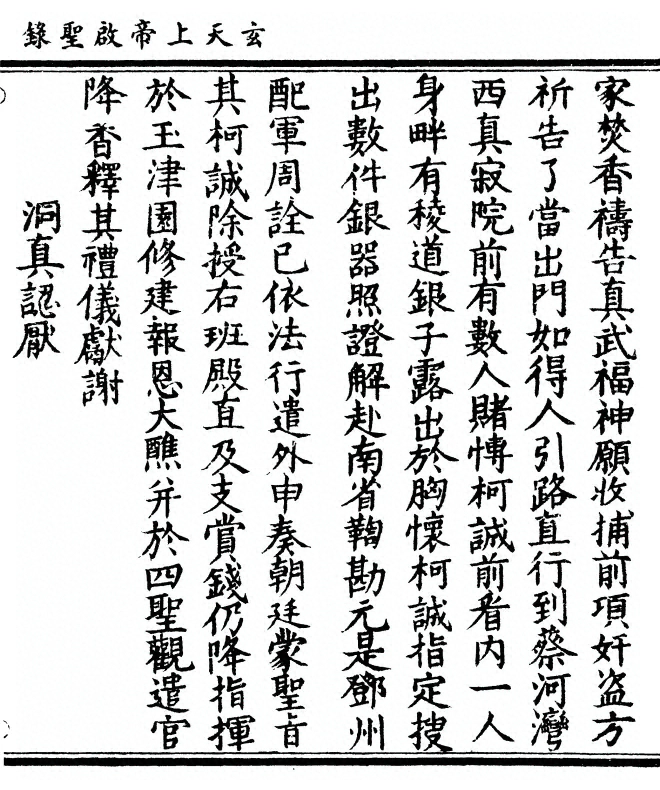 玄天上帝啟聖錄
家焚香禱告真武福神願收捕前項奸盜方
祈告了當出門如得人引路直行到蔡河灣
西真寂院前有數人賭博柯誠前看內一人
身畔有稜道銀子露出於胸懷柯誠指定搜
出數件銀器照證解赴南省鞫勘元是鄧州
配軍周詮已依法行遣外申奏朝廷蒙聖旨
其柯誠除授右班殿直及支賞錢仍降指揮
於玉津園修建報恩大醮并於四聖觀遣官
降香釋其禮儀獻謝
洞真認厭